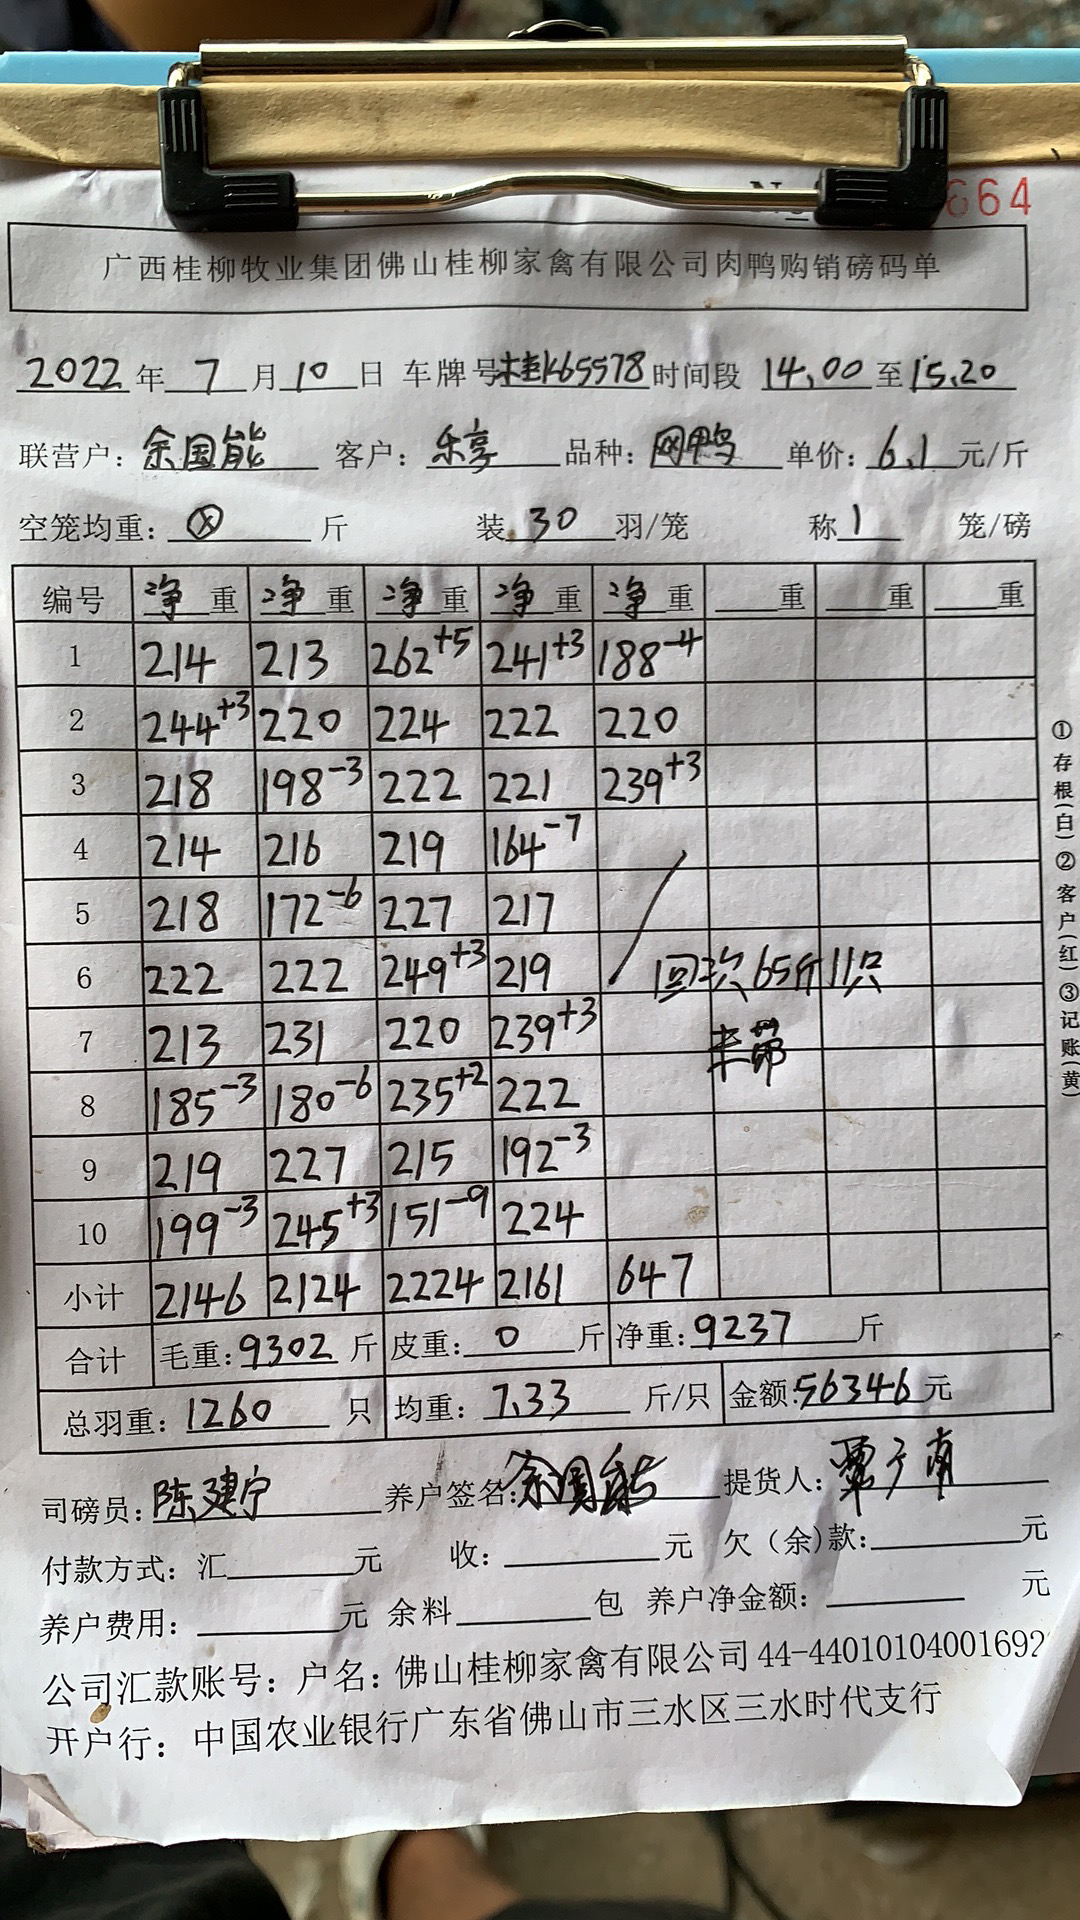 664
广西桂柳牧业集团佛山桂柳家禽有限公司肉鸭购销磅码单
2022年7月10日 车牌号桂K65578时间段 14,00至15,20
联营户：余国能 客户：乐享 品种：网鸭 单价：6,1元/斤
空笼均重：⊗ 斤 装30羽/笼 称1 笼/磅
编号 净重 净重 净重 净重 净重 重 重 重
1 214 213 262+5 241+3 188-4
2 244+3 220 224 222 220
3 218 198-3 222 221 239+3
4 214 216 219 164-7
5 218 172-6 227 217
6 222 222 249+3 219 回次65斤11只
7 213 231 220 239+3
8 185-3 180-6 235+2 222
9 219 227 215 192-3
10 199-3 245+3 151-9 224
小计 2146 2124 2224 2161 647
合计 毛重：9302斤 皮重：0斤 净重：9237斤
总羽重：1260只 均重：7.33斤/只 金额：56346元
司磅员：陈建宁 养户签名：余国能 提货人：覃广南
付款方式：汇 元 收： 元 欠（余）款： 元
养户费用： 元 余料 包 养户净金额： 元
公司汇款账号：户名：佛山桂柳家禽有限公司 44-44010104001692
开户行：中国农业银行广东省佛山市三水区三水时代支行
①存根（白）②客户（红）③记账（黄）